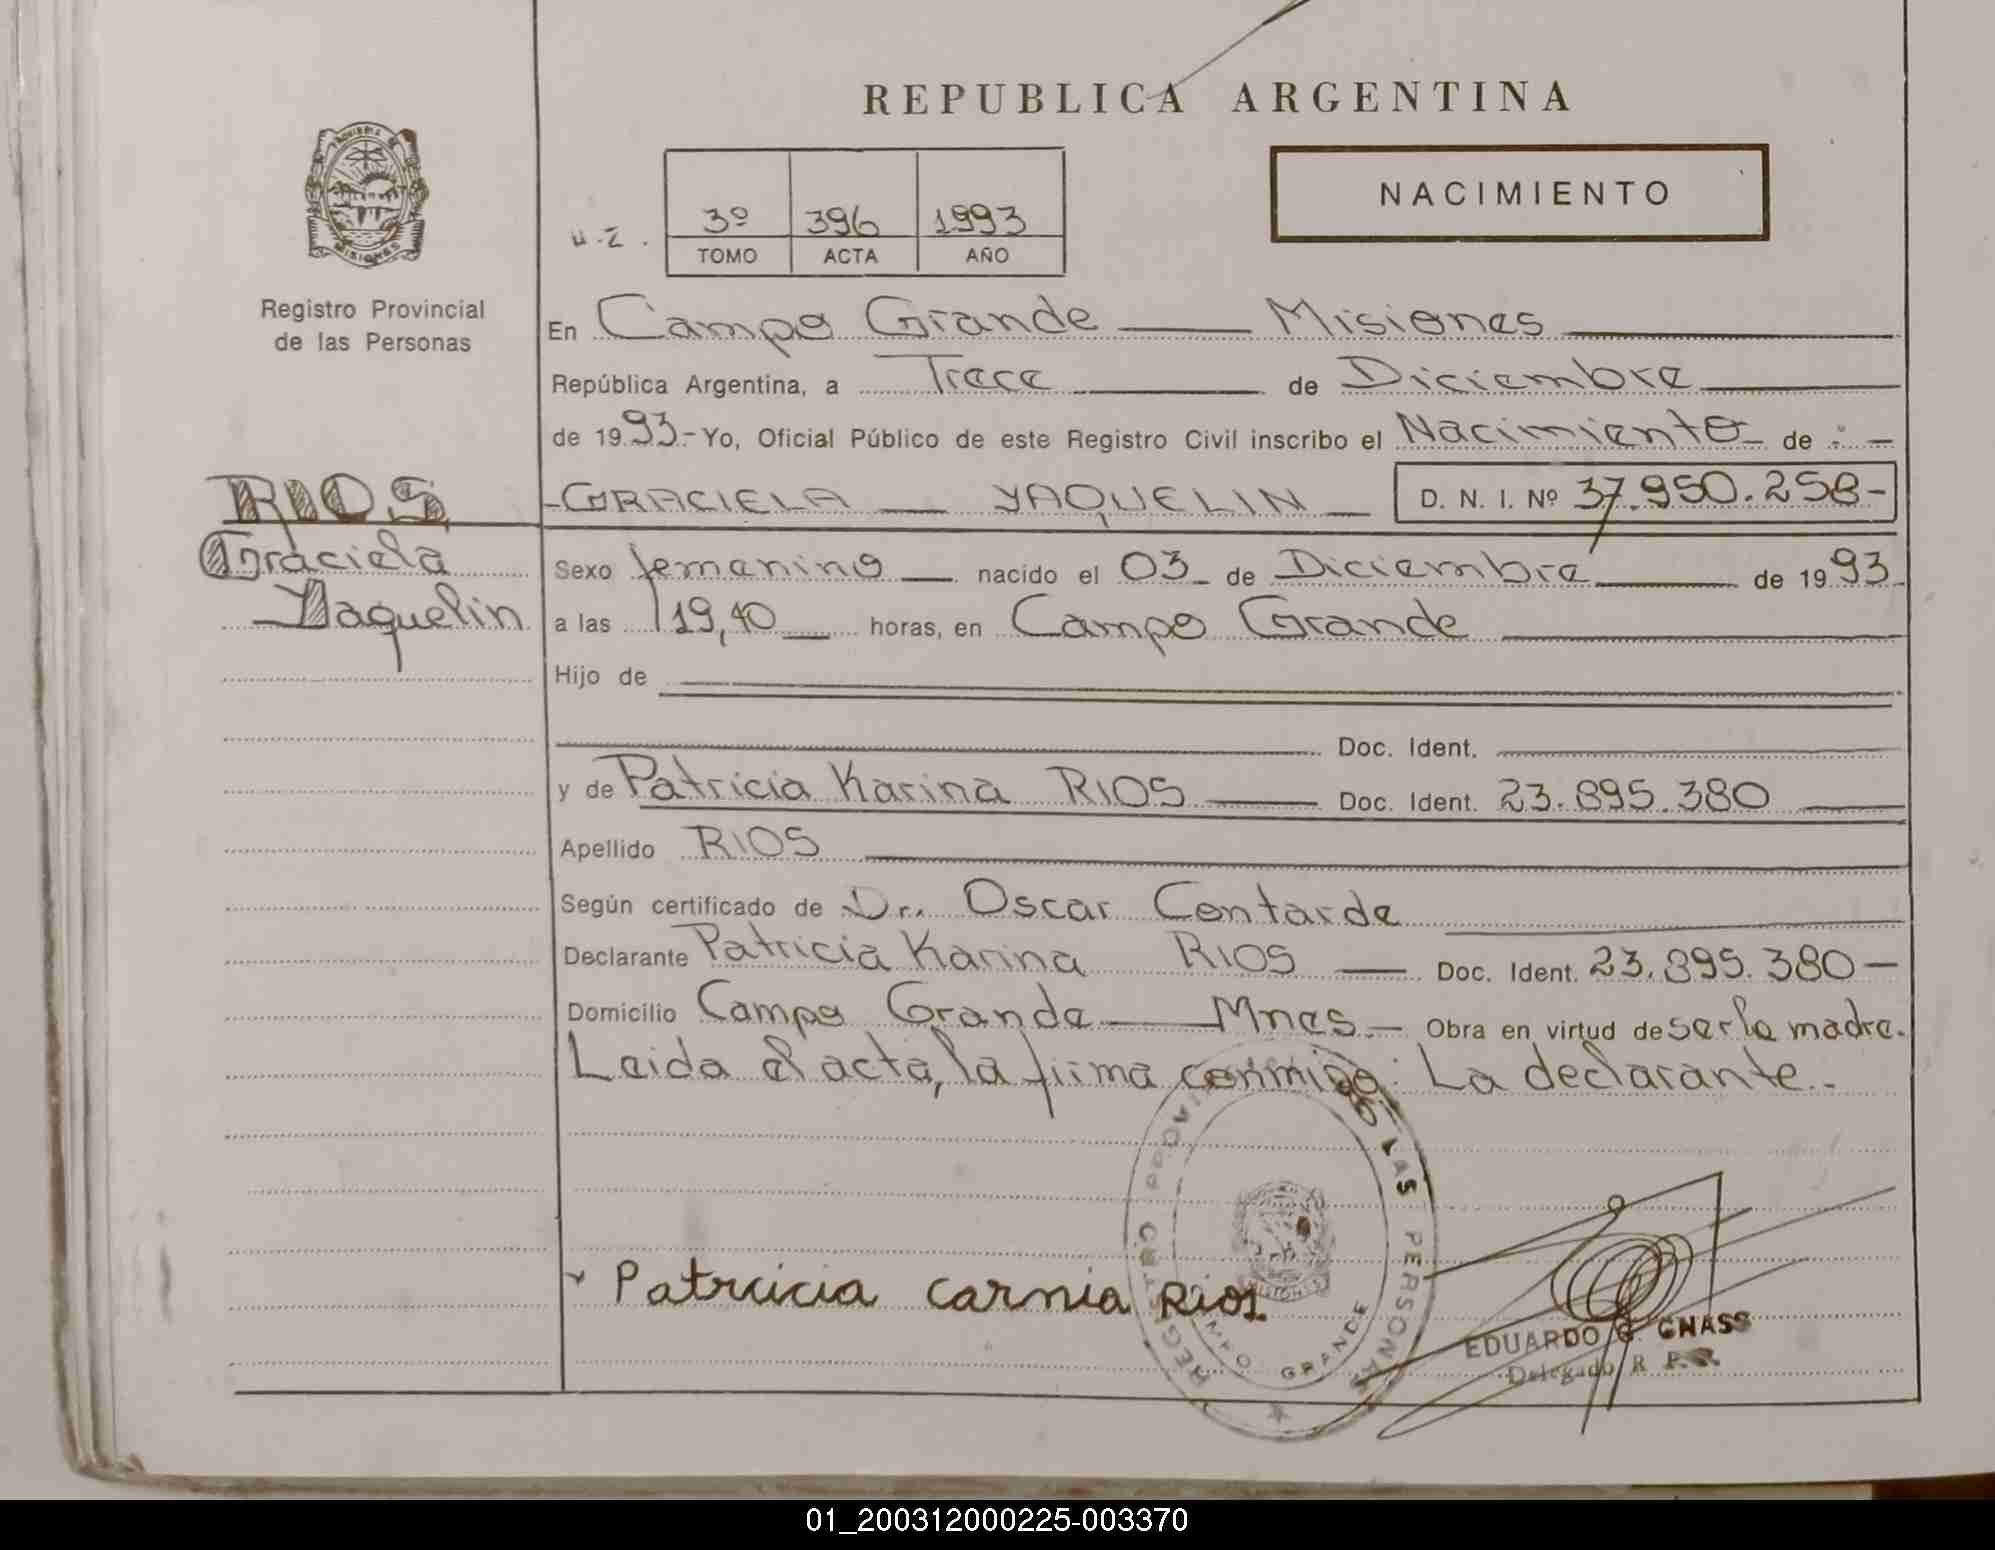 REPUBLICA ARGENTINA
NACIMIENTO
3º 396 1993
TOMO ACTA AÑO
MISIONES
Registro Provincial
de las Personas
En Campo Grande Misiones
República Argentina, a Trece de Diciembre
de 1993.- Yo, Oficial Público de este Registro Civil inscribo el Nacimiento de :
RIOS
-GRACIELA YAQUELIN D. N. I. Nº 37.950.258-
Graciela
Yaquelin
Sexo femenino nacido el 03 de Diciembre de 1993
a las 19,40 horas, en Campo Grande
Hijo de
Doc. Ident.
y de Patricia Karina RIOS Doc. Ident. 23.895.380
Apellido RIOS
Según certificado de Dr. Oscar Contarde
Declarante Patricia Karina RIOS Doc. Ident. 23.895.380-
Domicilio Campo Grande Mnes.- Obra en virtud de ser la madre.
Leida el acta, la firma conmigo: La declarante.-
LAS PERSONAS
CAMPO GRANDE
Patricia carnia Rios
EDUARDO G. GNASS
Delegado R. P. P.
01_200312000225-003370